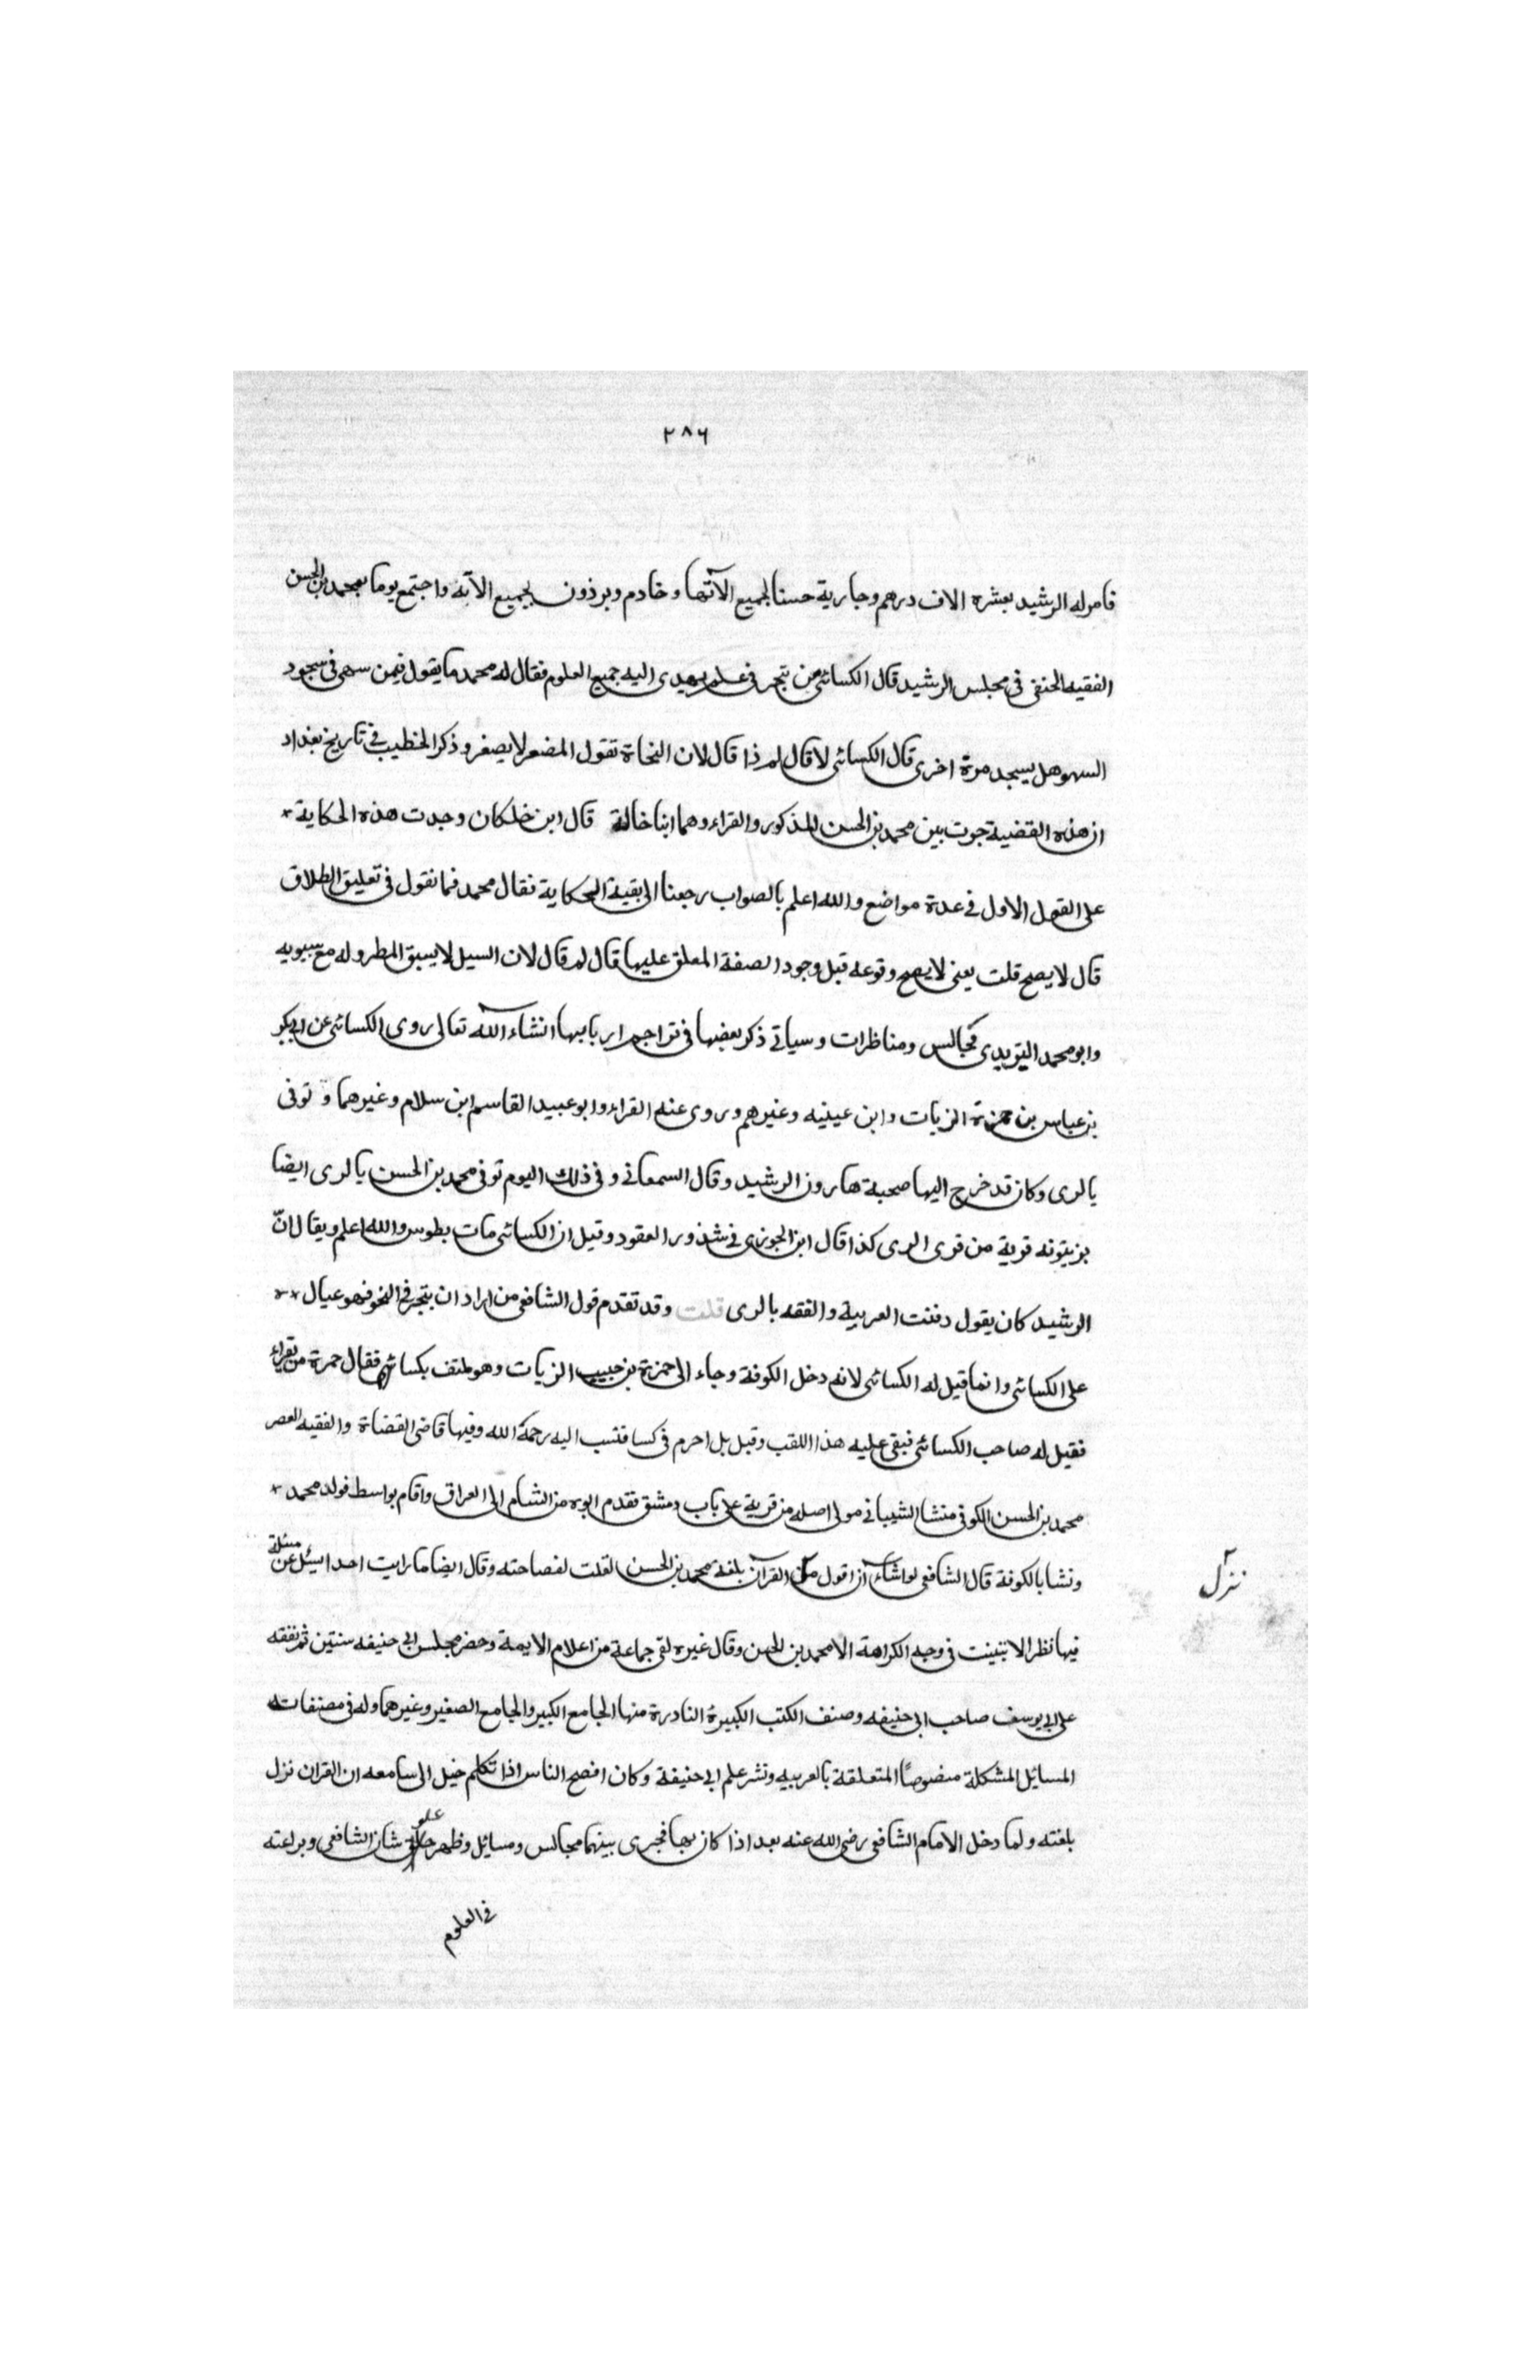 ٢٨٦
فامر له الرشيد بعشره الاف درهم وجارية حسنا لجميع الآتها وخادم وبرذون لجميع الآته واجتمع يوما بمحمد بن الحسن
الفقيه الحنفى فى مجلس الرشيد قال الكسائى من تبحر فى علم يهدى اليه جميع العلوم فقال له محمد ما يقول فيمن سهى فى سجود
السهو هل يسجد مرة اخرى قال الكسائى لا قال لم ذا قال لان النحاة تقول المصغر لا يصغر وذكر الخطيب فى تاريخ بغداد
ان هذه القضية جرت بين محمد بن الحسن المذكور والفراء وهما ابنا خالة قال ابن خلكان وجدت هذه الحكاية *
على القول الاول فى عدة مواضع والله اعلم بالصواب رجعنا الى بقية الحكاية فقال محمد فما نقول فى تعليق الطلاق
قال لا يصح قلت يعنى لا يصح وقوعه قبل وجود الصفة المعلق عليها قال لم قال لان السيل لا يسبق المطر وله مع سيبويه
وابو محمد اليزيدى مجالس ومناظرات وسياتى ذكر بعضها فى تراجم اربابها انشاء الله تعالى روى الكسائى عن ابى بكر
بن عباس بن حمزة الزيات وابن عينيه وغيرهم وروى عنه الفراء وابو عبيد القاسم ابن سلام وغيرهما و توفى
بالرى وكان قد خرج اليها صحبة هارون الرشيد وقال السمعانى وفى ذلك اليوم توفى محمد بن الحسن بالرى ايضا
بزيتونه قرية من قرى الرى كذا قال ابن الجوزى فى شذور العقود وقيل ان الكسائى مات بطوس والله اعلم ويقال انّ
الرشيد كان يقول دفنت العربية والفقه بالرى قلت وقد تقدم قول الشافعى من اراد ان يتبحر فى النحو فهو عيال **
على الكسائى وانما قيل له الكسائى لانه دخل الكوفة وجاء الى حمزة بن حبيب الزيات وهو ملتف بكساء فقال حمزة من يقراء
فقيل له صاحب الكسائى فبقى عليه هذا اللقب وقيل بل احرم فى كسا فنسب اليه رحمة الله وفيها قاضى القضاة والفقيه العصر
محمد بن الحسن الكوفى منشا الشيبانى مولى اصله من قرية على باب دمشق فقدم ابوه من الشام الى العراق واقام بواسط فولد محمد *
ونشا بالكوفة قال الشافعى لو اشاء ان اقول نزل القرآن بلغة محمد بن الحسن لقلت لفصاحته وقال ايضا ما رايت احدا سيئل عن مسئلة
نزل
فيها نظر الا تبينت فى وجه الكراهة الا محمد بن الحسن وقال غيره لقى جماعة من اعلام الايمة وحضر مجلس ابى حنيفه سنتين ثم تفقه
على ابى يوسف صاحب ابى حنيفه وصنف الكتب الكبيرة النادرة منها الجامع الكبير والجامع الصغير وغيرهما وله فى مصنفاته
المسايل المشكلة منصوصًا المتعلقة بالعربيه ونشر علم ابى حنيفة وكان افصح الناس اذا تكلم خيل الى سامعه ان القران نزل
بلغته ولما دخل الامام الشافعى رضى الله عنه بعد اذا كان بها فجرى بينهما مجالس ومسائل وظهر علو شان الشافعى وبراعته
فى العلوم